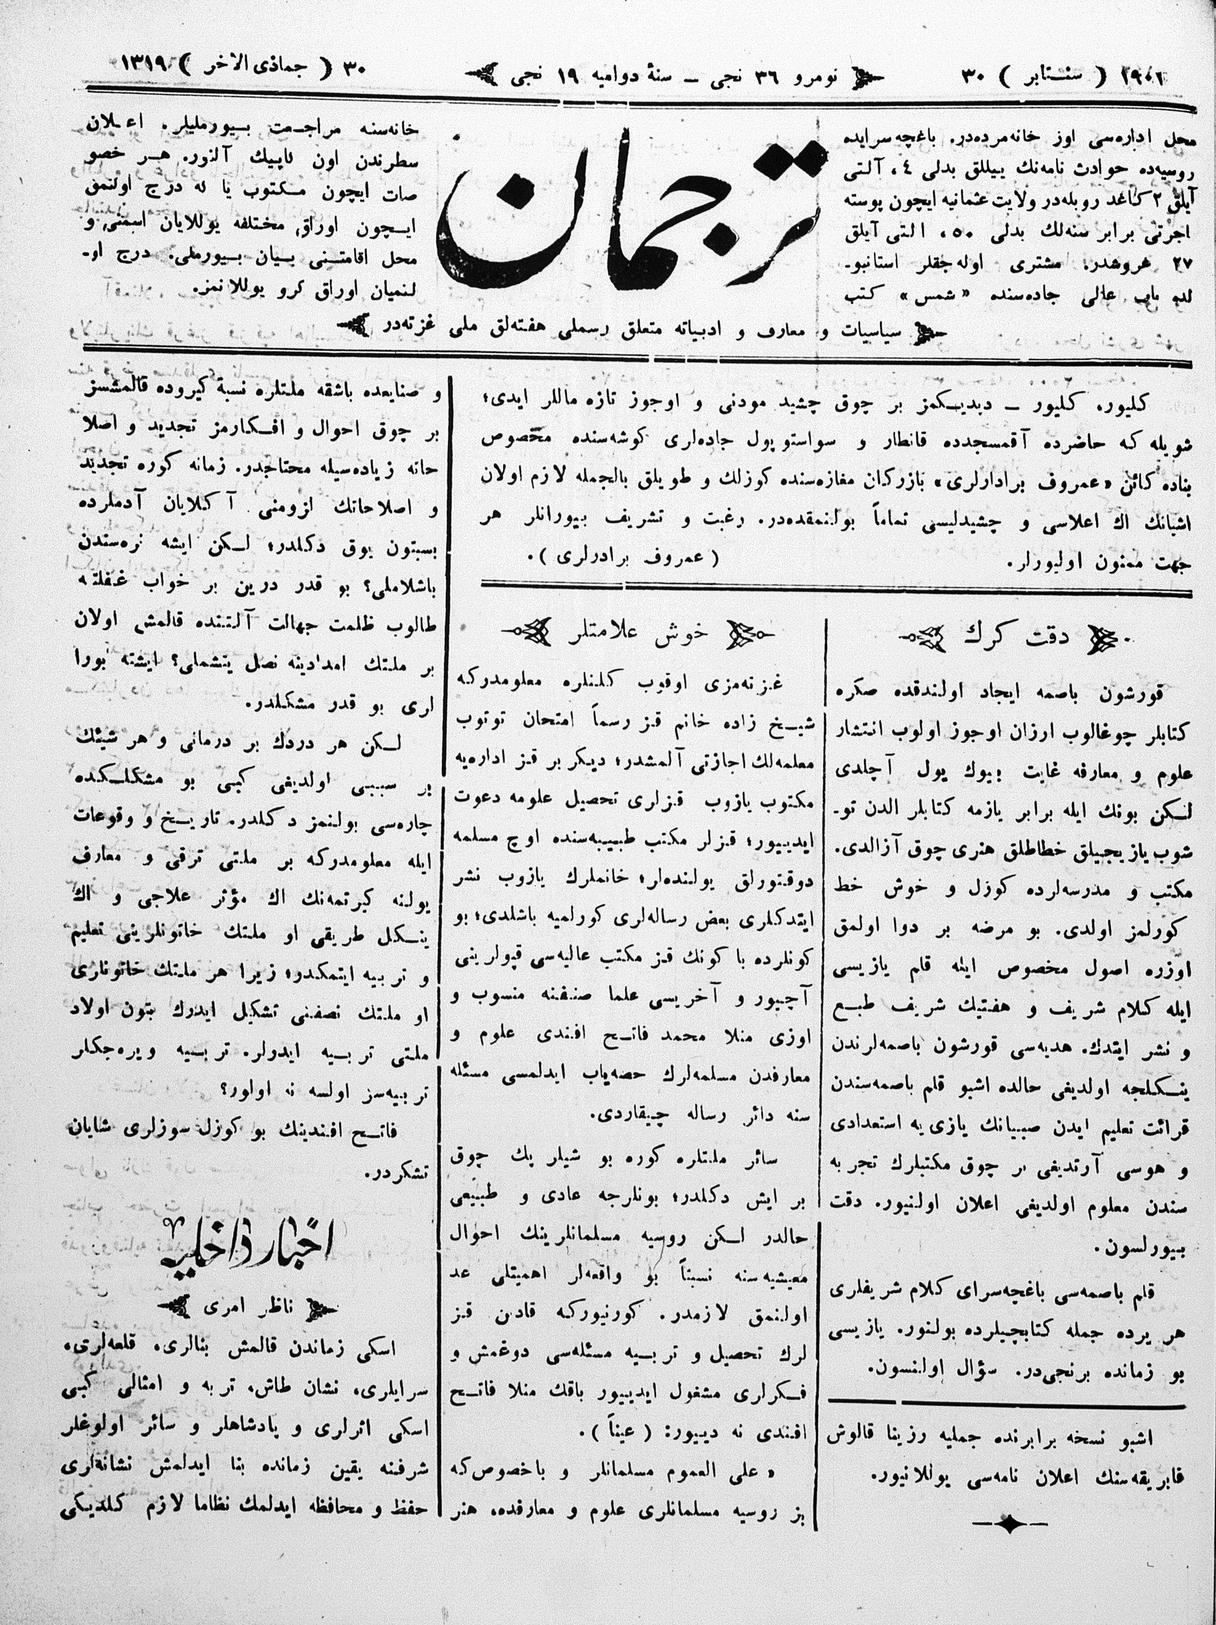 ۱۹۰۱ ( سنتابر ) ۳۰
نومرو ۳۶ نجی ــ سنهٔ دوامیه ۱۹ نجی
۳۰ ( جماذی الاخر ) ۱۳۱۹
محل اداره‌سی اوز خانه‌مزده‌در. باغچه‌سرایده
روسیه‌ده حوادث نامه‌نك ییللق بدلی ٤، آلتی
آیلق ۲ کاغد روبله‌در ولایت عثمانیه ایچون پوسته
اجرتی برابر سنه‌لك بدلی ۵۰، التی آیلق
۲۷ غروشدر. مشتری اوله‌جقلر استانبو-
لده باب عالی جاده‌سنده «شمس» کتب
ترجمان
خانه‌سنه مراجعت بیورملیلر. اعلان
سطرندن اون قاپیك آلنور. هر خصو
صات ایچون مکتوب یا له درج اولنمق
ایچون اوراق مختلفه یوللایان اسمنی و
محل اقامتنی بیان بیورملی. درج او-
لنمیان اوراق کرو یوللانمز.
سیاسیات و معارف و ادبیاته متعلق رسملی هفته‌لق ملی غزته‌در
کلیور، کلیور ــ دیدیکمز بر چوق چشید مودنی و اوجوز تازه ماللر ایدی؛
شویله که حاضرده آقمسجدده قانطار و سواستوپول جاده‌لری کوشه‌سنده مخصوص
بناده کائن «عمروف برادارلری» بازرکان مغازه‌سنده کوزلك و طویلق بالجمله لازم اولان
اشیانك اك اعلاسی و چشیدلیسی تماماً بولنمقده‌در. رغبت و تشریف بیورانلر هر
جهت ممنون اولیورلر. ( عمروف برادرلری ).
دقت کرك
قورشون باصمه ایجاد اولندقده صکره
کتابلر چوغالوب ارزان اوجوز اولوب انتشار
علوم و معارفه غایت بیوك یول آچلدی
لکن بونك ایله برابر یازمه کتابلر الدن تو-
شوب یازیجیلق خطاطلق هنری چوق آزالدی.
مکتب و مدرسه‌لرده کوزل و خوش خط
کورلمز اولدی. بو مرضه بر دوا اولمق
اوزره اصول مخصوص ایله قلم یازیسی
ایله کلام شریف و هفتیك شریف طبع
و نشر ایتدك. هدیه‌سی قورشون باصمه‌لرندن
ینکلجه اولدیغی حالده اشبو قلم باصمه‌سندن
قرائت تعلیم ایدن صبیانك یازی‌یه استعدادی
و هوسی آرتدیغی بر چوق مکتبلرك تجربه
سندن معلوم اولدیغی اعلان اولنیور. دقت
بیورلسون.
قلم باصمه‌سی باغچه‌سرای کلام شریفلری
هر یرده جمله کتابچیلرده بولنور. یازیسی
بو زمانده برنجی‌در. سؤال اولنسون.
اشبو نسخه برابرنده جملیه رزینا قالوش
فابریقه‌سنك اعلان نامه‌سی یوللانیور.
خوش علامتلر
غزته‌مزی اوقوب کلنلره معلومدرکه
شیخ زاده خانم قز رسماً امتحان توتوب
معلمه‌لك اجازتی آلمشدر؛ دیکر بر قز اداره‌یه
مکتوب یازوب قزلری تحصیل علومه دعوت
ایدییور؛ قزلر مکتب طبیبه‌سنده اوچ مسلمه
دوقتورلق یولنده‌لر؛ خانملرك یازوب نشر
ایتدکلری بعض رساله‌لری کورلمیه باشلدی؛ بو
کونلرده باکونك قز مکتب عالیه‌سی قپولرینی
آچیور و آخریسی علما صنفنه منسوب و
اوزی منلا محمد فاتح افندی علوم و
معارفدن مسلمه‌لرك حصه‌یاب ایدلمسی مسئله
سنه دائر رساله چیقاردی.
سائر ملتلره کوره بو شیلر پك چوق
بر ایش دکلدر؛ بونلرجه عادی و طبیعی
حالدر لکن روسیه مسلمانلرینك احوال
معیشیه‌سنه نسبتاً بو واقعه‌لر اهمیتلی عد
اولنمق لازمدر. کورنیورکه قادن قز
لرك تحصیل و تربیه مسئله‌سی دوغمش و
فکرلری مشغول ایدییور باقك منلا فاتح
افندی نه دییور: ( عیناً ).
« علی العموم مسلمانلر و باخصوص‌که
بز روسیه مسلمانلری علوم و معارفده، هنر
و صنایعده باشقه ملتلره نسبة کیروده قالمشسز
بر چوق احوال و افکارمز تجدید و اصلا
حانه زیاده‌سیله محتاجدر. زمانه کوره تجدید
و اصلاحاتك لزومنی آکلایان آدملرده
بسبتون یوق دکلدر؛ لکن ایشه نره‌سندن
باشلاملی؟ بو قدر درین بر خواب غفلته
طالوب ظلمت جهالت آلتنده قالمش اولان
بر ملتك امدادینه نصل یتشملی؟ ایشته بورا
لری بو قدر مشکلدر.
لکن هر دردك بر درمانی و هر شیئك
بر سببی اولدیغی کبی بو مشکلکده
چاره‌سی بولنمز دکلدر. تاریخ و وقوعات
ایله معلومدرکه بر ملتی ترقی و معارف
یولنه کیرتمه‌نك اك مؤثر علاجی و اك
ینکل طریقی او ملتك خاتونلرینی تعلیم
و تربیه ایتمکدر؛ زیرا هر ملتك خاتونلری
او ملتك نصفنی تشکیل ایدرك بتون اولاد
ملتی تربیه ایدولر. تربیه ویره‌جکلر
تربیه‌سز اولسه نه اولور؟
فاتح افندینك بو کوزل سوزلری شایان
تشکردر.
اخبار داخلیه
ناظر امری
اسکی زماندن قالمش بنالری، قلعه‌لری،
سرایلری، نشان طاش، تربه و امثالی کبی
اسکی اثرلری و پادشاهلر و سائر اولوغلر
شرفنه یقین زمانده بنا ایدلمش نشانه‌لری
حفظ و محافظه ایدلمك نظاما لازم کلدیکی